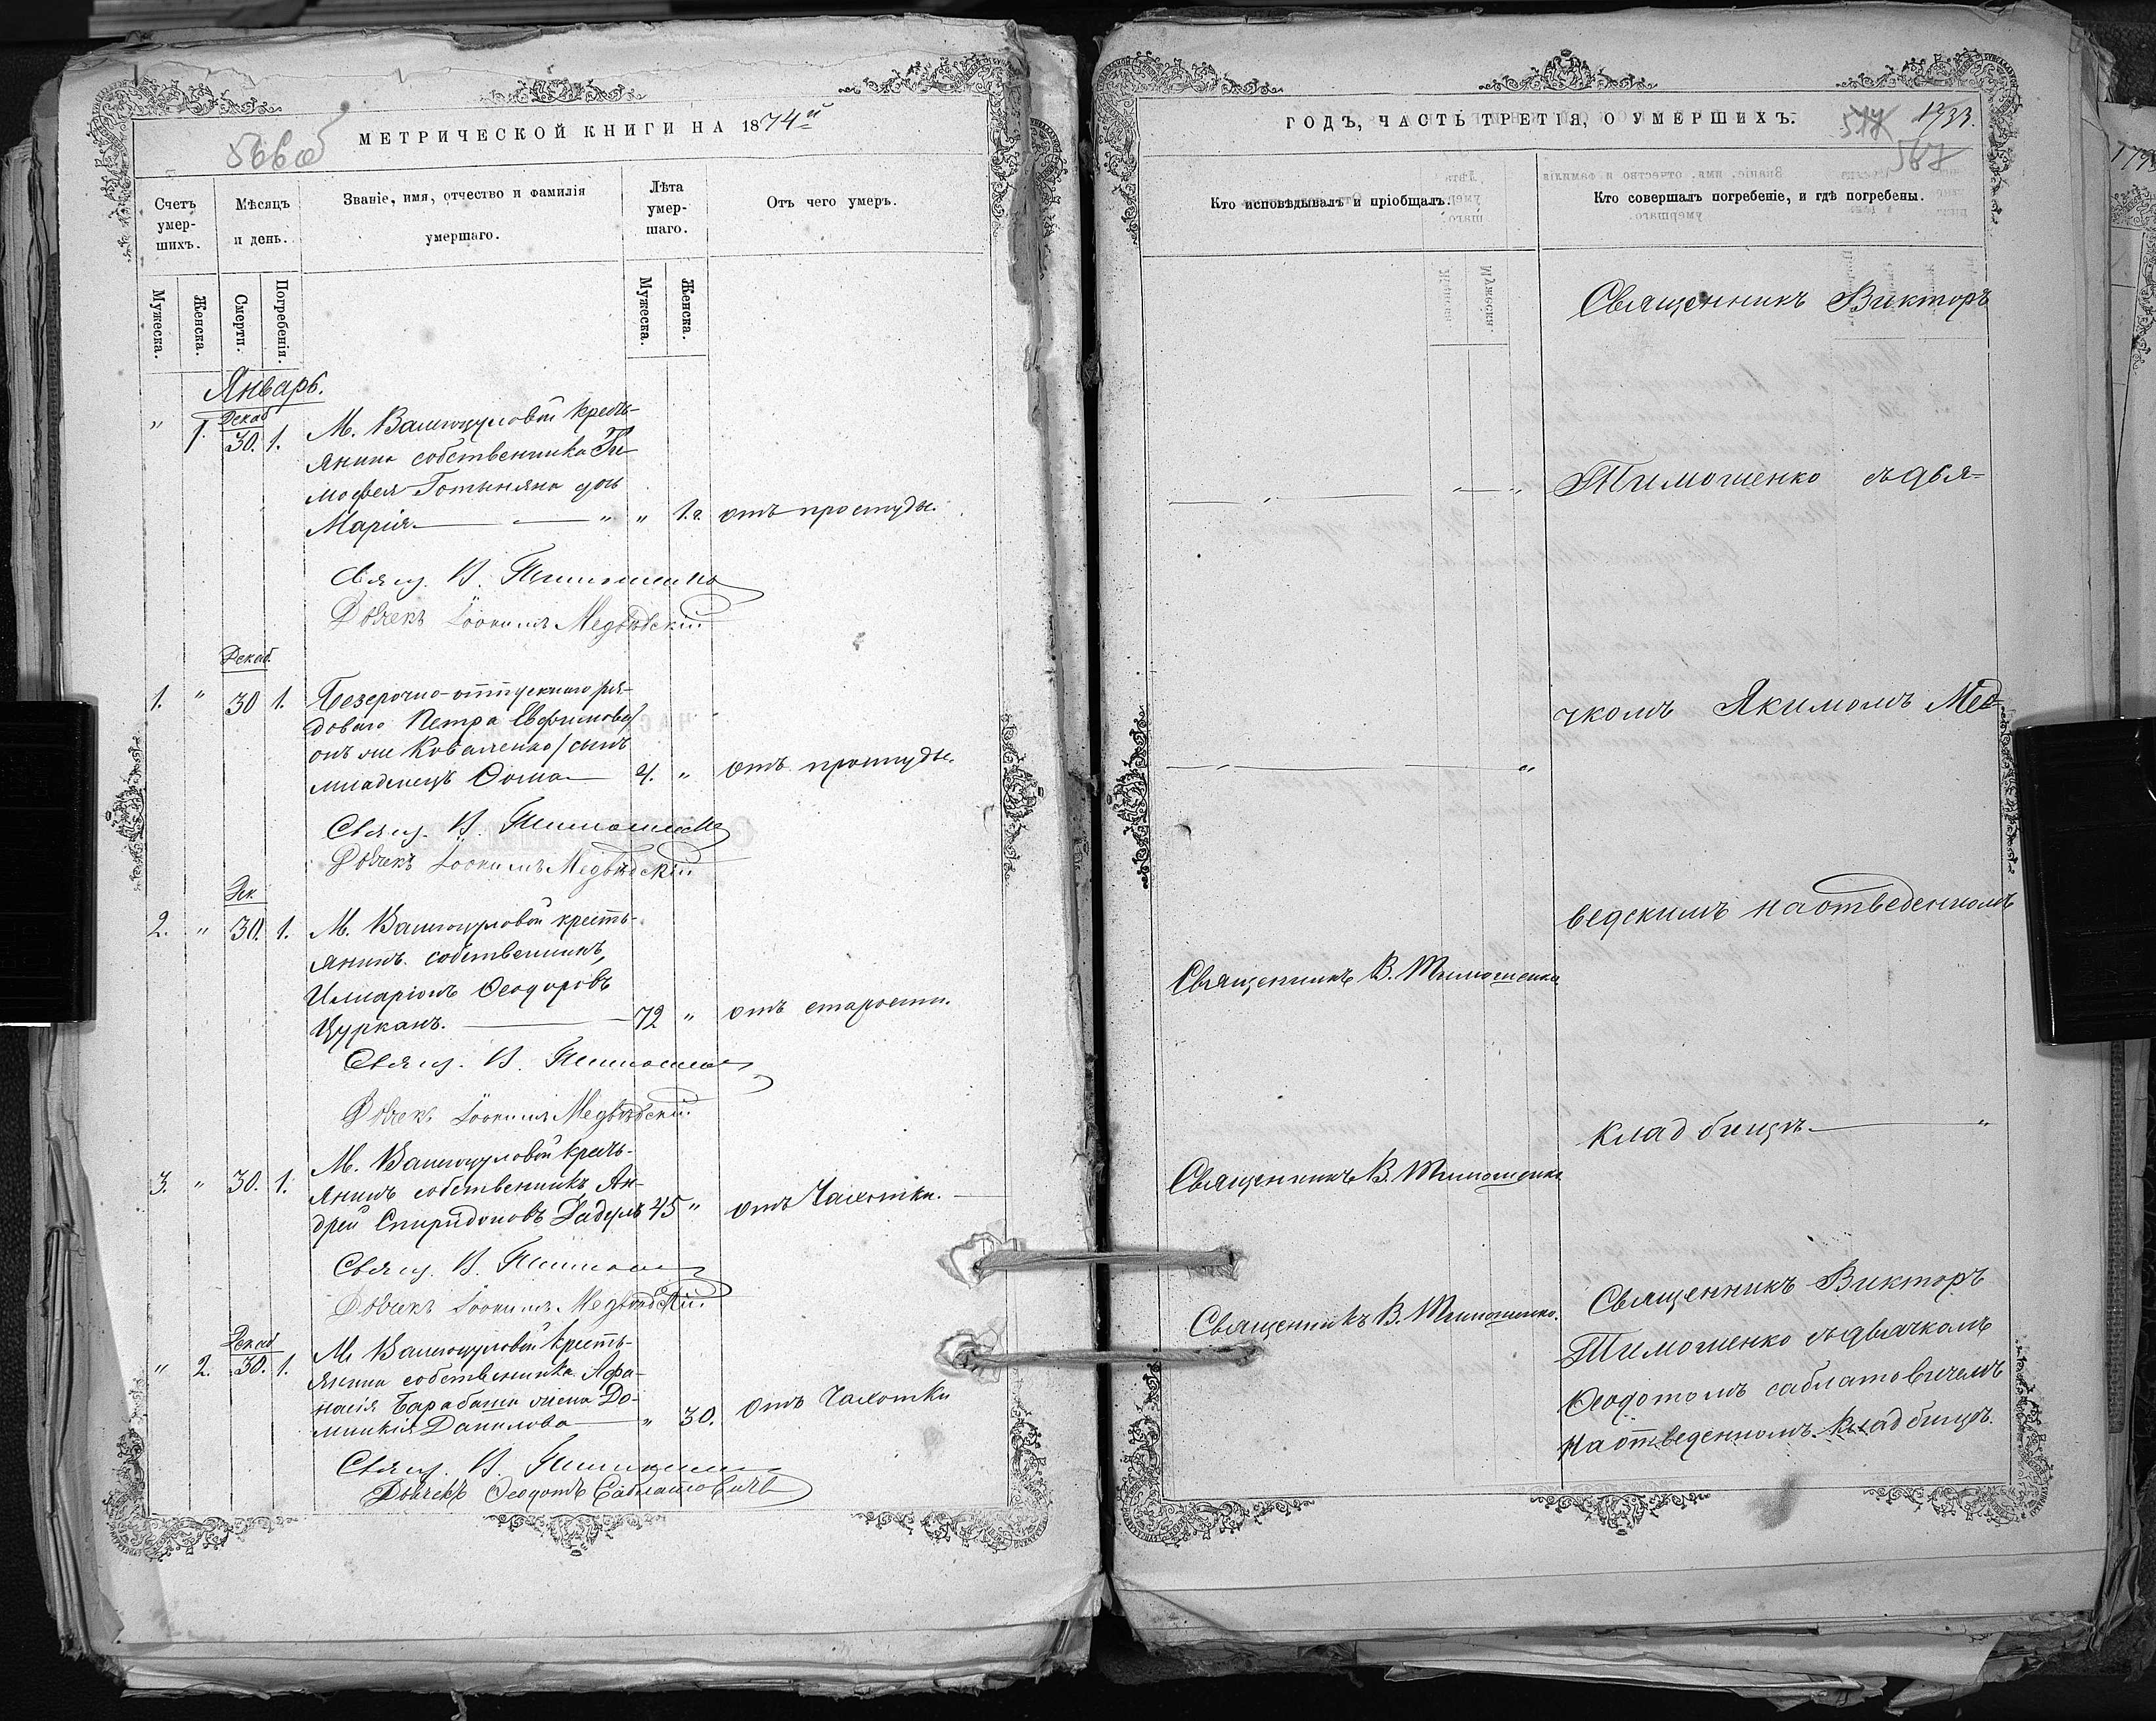 МЕТРИЧЕСКОЙ КНИГИ НА 1874й
566об
Счетъ умер-шихъ.
Мѣсяцъ и день.
Званіе, имя, отчество и фамилія умершаго.
Лѣта умер-шаго.
Отъ чего умеръ.
Мужеска.
Женска.
Смерти.
Погребенія.
Мужеска.
Женска.
Январь.
Декаб
" 1. 30. 1. М. Валегоцуловой кресть-
янина собственника Ти-
мофея Готыняна дочь
Марія " " 1.г. отъ простуды.
Свящ. В. Тимошенко
Дьячекъ Іоакимъ Медвѣдскій
Декаб.
1. " 30 1. Безсрочно-отпускного ря-
доваго Петра Евфимова /
онъ же Коваленко / сынъ
младенецъ Ѳома 4. " отъ простуды.
Свящ. В. Тимошенко
Дьячекъ Іоакимъ Медвѣдскій
Дек.
2. " 30. 1. М. Валегоцуловой кресть-
янинъ собственникъ,
Илларіонъ Ѳеодоровъ
Цурканъ. 72 " отъ старости.
Свящ. В. Тимошенко
Дьячекъ Іоакимъ Медвѣдскій
3. " 30. 1. М. Валегоцуловой кресть-
янинъ собственникъ Ан-
дрей Спиридоновъ 45 " отъ чахотки.
Свящ. В. Тимошенко
Дьячекъ Іоакимъ Медвѣдскій
Декаб
" 2. 30. 1. М. Валегоцуловой кресть-
янина собственника Афа-
насія Барабаша жена До-
микія Данилова " 30. отъ чахотки
Свящ. В. Тимошенко
Дьячекъ Ѳеодотъ Саблатовичъ
ГОДЪ, ЧАСТЬ ТРЕТІЯ, О УМЕРШИХЪ.
517 1733.
567
Кто исповѣдывалъ и пріобщалъ.
Кто совершалъ погребеніе, и гдѣ погребены.
Священникъ Викторъ
Тимошенко съ дья-
чкомъ Якимомъ Мед-
ведскимъ на отведенномъ
Священникъ В. Тимошенко
кладбищѣ. "
Священникъ В. Тимошенко
Священникъ В. Тимошенко.
Священникъ Викторъ
Тимошенко съ дьячкомъ
Ѳеодотомъ Саблатовичемъ
на отведенномъ кладбищѣ.